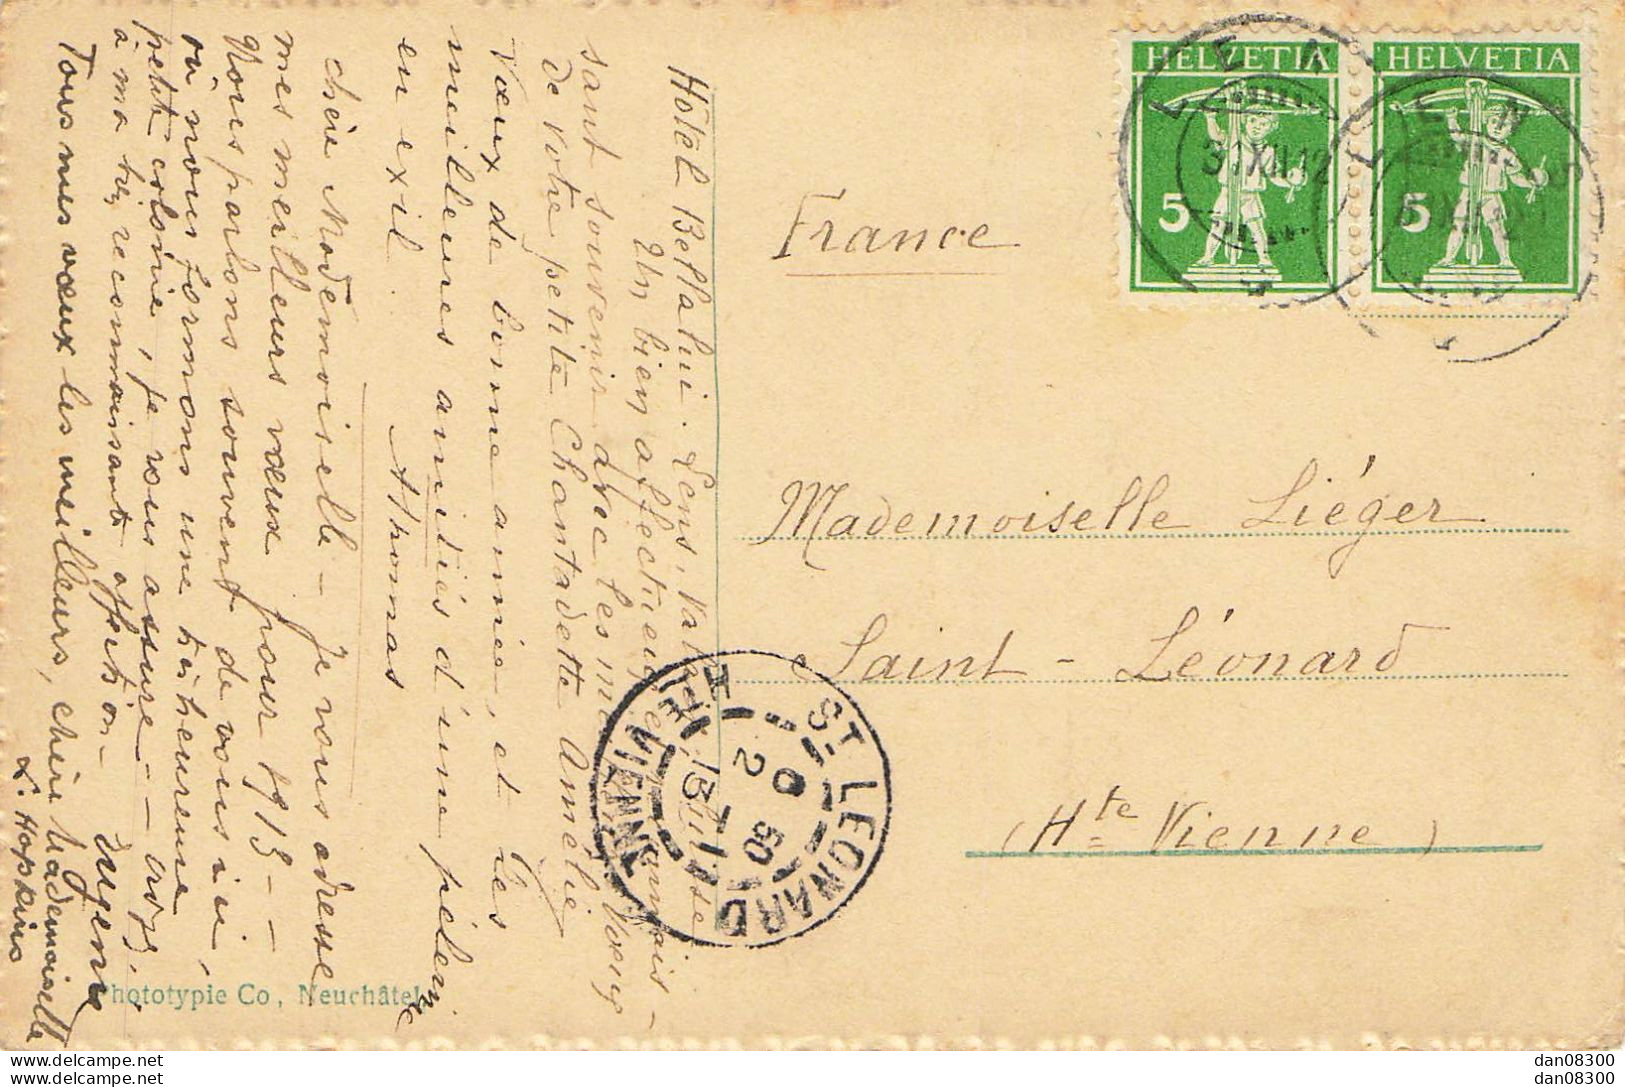 HELVETIA
5
HELVETIA
5
LENS
31 XII 12
LENS
France
Mademoiselle Liéger
Saint-Léonard
(Hte Vienne)
ST LEONARD
HTE VIENNE
Hôtel Bellalui. Lens, Valais,
Un bien affectueux et
sant souvenir avec les
de votre petite Chantadette Amélie
Vœux de bonne année, et les
meilleures amitiés d'une
en exil. A Thomas
chère Mademoiselle - Je vous adresse
mes meilleurs vœux pour 1913 -
Nous parlons souvent de vous ici,
où nous formons une très heureuse
petite colonie, je vous assure -
à ma très reconnaissante affection -
Tous mes vœux les meilleurs, chère Mademoiselle
L. Hopkins
Phototypie Co, Neuchâtel
dan08300
dan08300